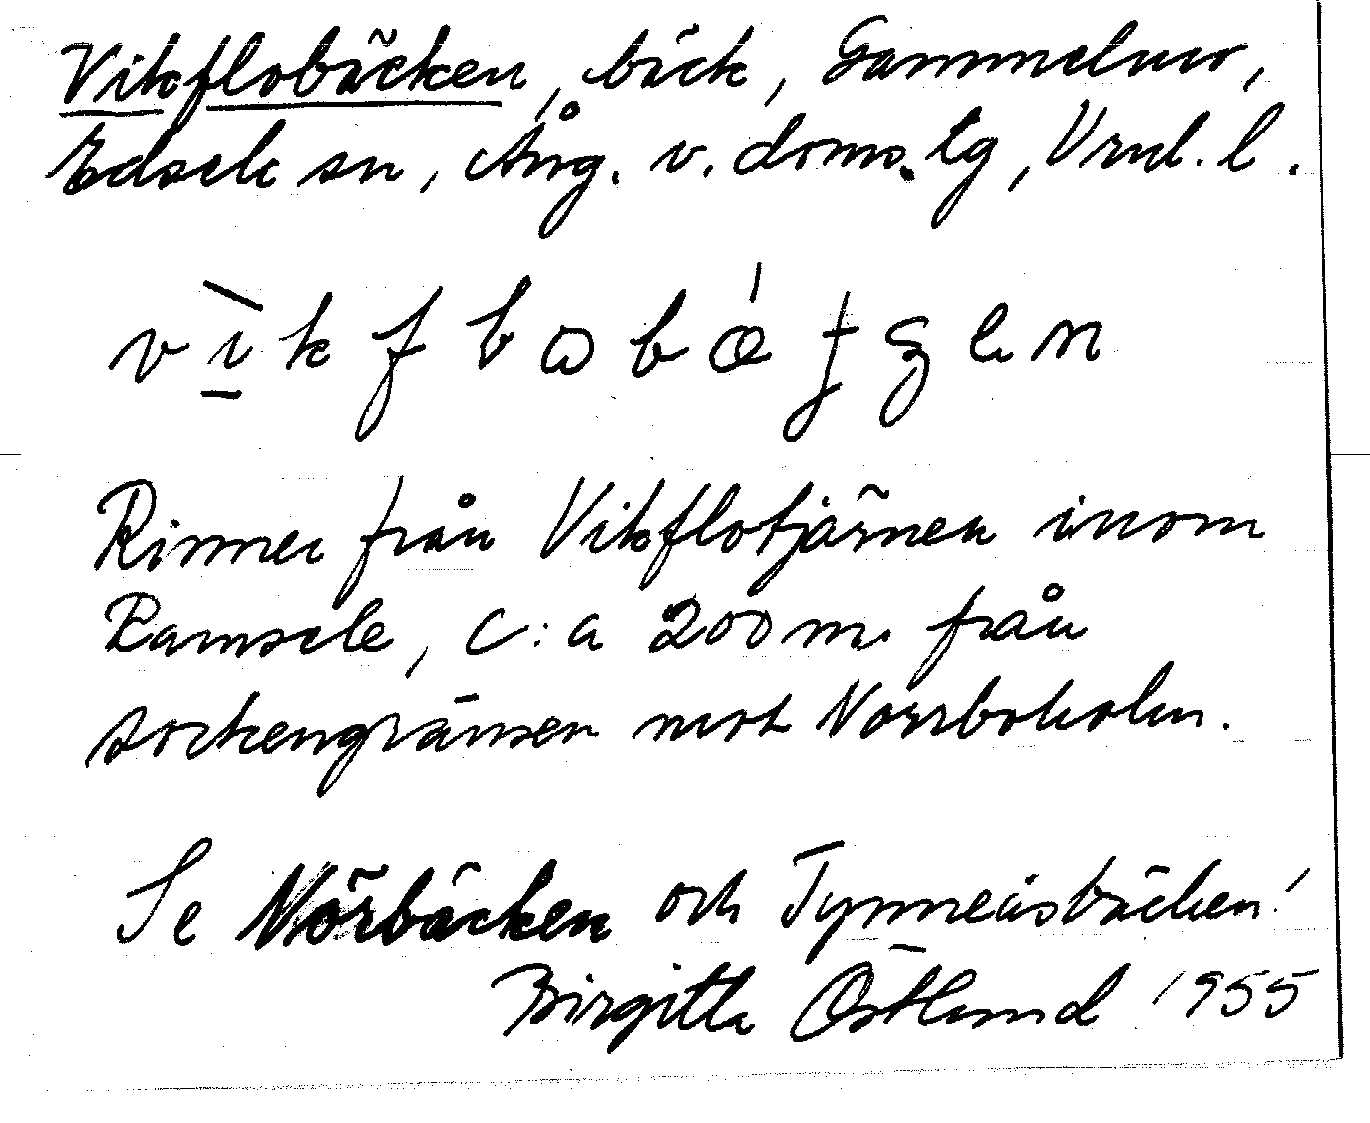 Vikflobäcken, bäck, Gammelmo,
Edsele sn, Ång. v. doms.tg, Vrnl. l.
Rinner från Vikflotjärnen inom
Ramsele, c:a 200 m. från
sockengränsen mot Norrbokoln.
Se Mörbäcken och Tynneåsbäcken!
Birgitta Östlund 1955